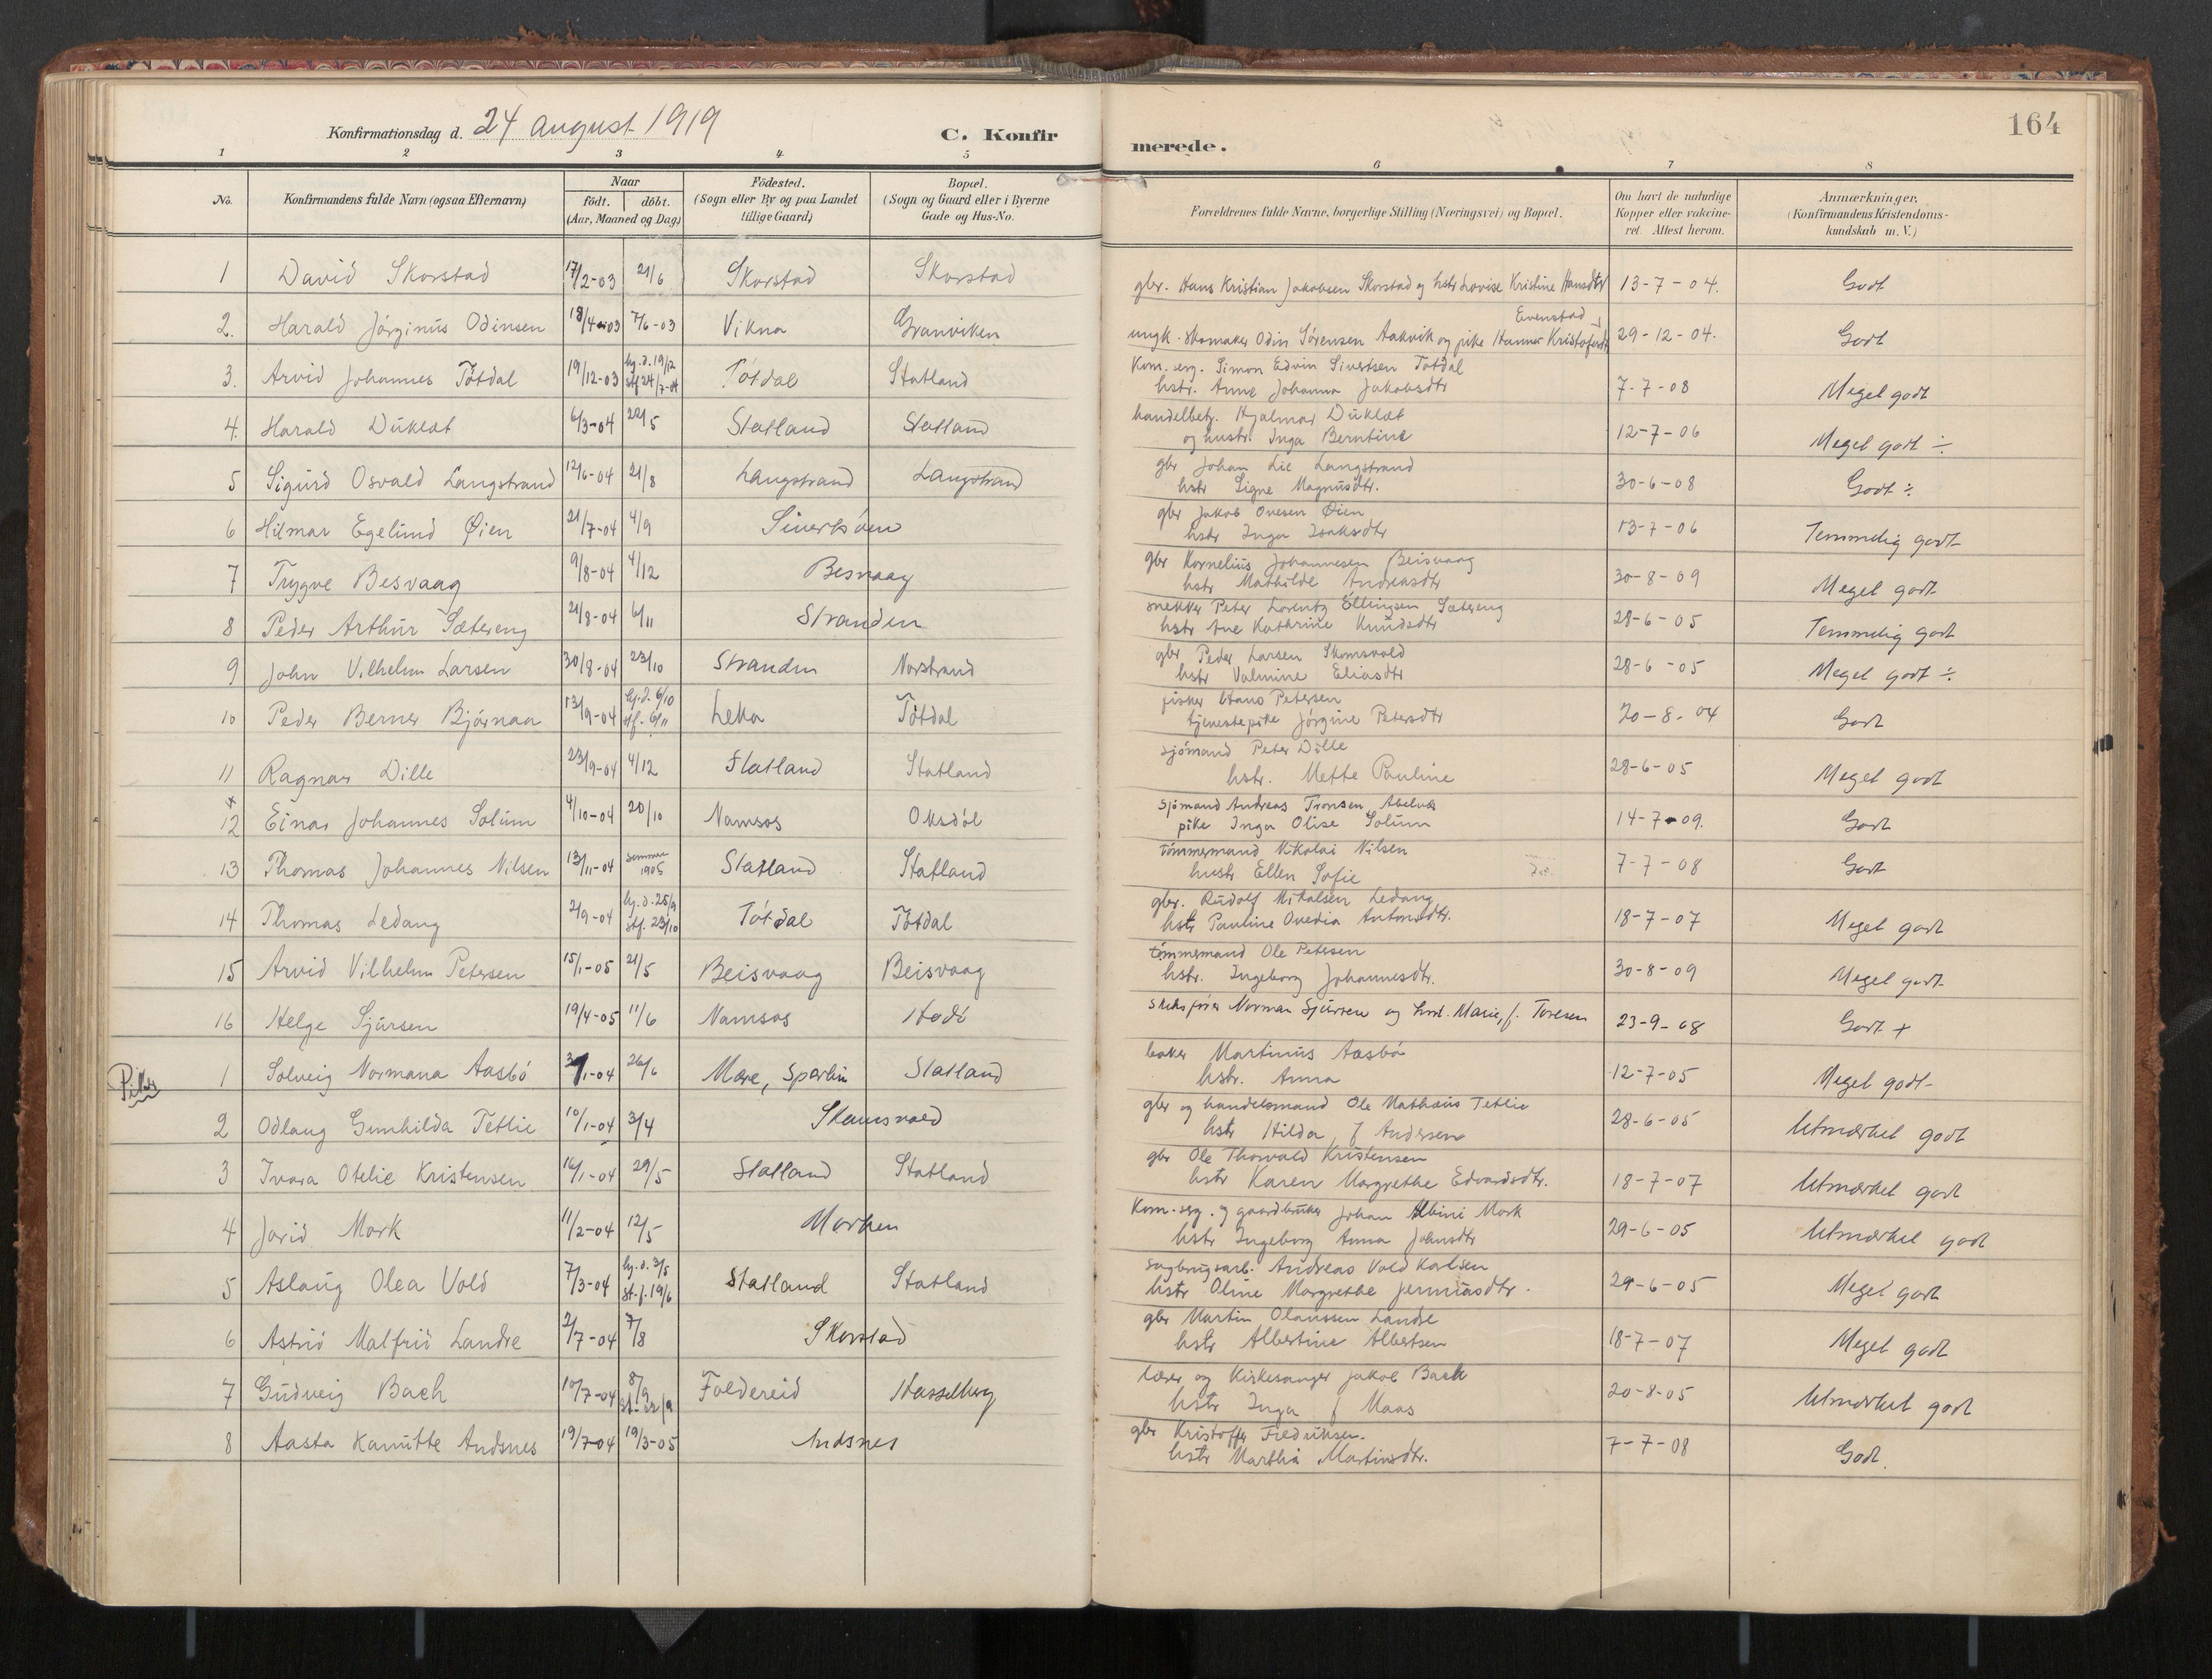 164
Konfirmationsdag d. 24 august 1919
C. Konfirmerede.
1 2 3 4 5 6 7 8
No. Konfirmandens fulde Navn (ogsaa Efternavn) Naar født. døbt. (Aar, Maaned og Dag) Födested. (Sogn eller By og paa Landet tillige Gaard) Bopæl. (Sogn og Gaard eller i Byerne Gade og Hus-No. Forældrenes fulde Navne, borgerlige Stilling (Næringsvei) og Bopæl. Om havt de naturlige Kopper eller vakcineret. Attest herom. Anmærkninger. (Konfirmandens Kristendomskundskab m. V.)
1 David Skorstad 17/2-03 21/6 Skorstad Skorstad gbr. Hans Kristian Jakobsen Skorstad og hstr Lovise Kristine Hansdtr 13-7-04. Godt
2. Harald Jørginus Odinsen 18/4-03 7/6-03 Vikna Granviken ungk. skomaker Odin Sørensen Aakvik og pike Hanna Kristofersdtr Evenstad 29-12-04. Godt
3. Arvid Johannes Tøtdal 19/12-03 hj.d. 19/12 stf 24/7-04 Tøtdal Statland Kom. eng. Simon Edvin Sivertsen Tøtdal
hstr. Anne Johanna Jakobsdtr 7-7-08 Meget godt
4. Harald Duklæt 6/3-04 22/5 Statland Statland handelbetj. Hjalmar Duklæt
og hustr. Inga Berntine 12-7-06 Meget godt ÷
5 Sigurd Osvald Langstrand 12/6-04 21/8 Langstrand Langstrand gbr Johan Lie Langstrand
hstr Signe Magnusdtr. 30-6-08 Godt ÷
6 Hilmar Egelund Øien 21/7-04 4/9 Sivertsøen gbr Jakob Ovesen Øien
hstr Inga Isaksdtr 13-7-06 Temmelig godt
7 Trygve Besvaag 9/8-04 4/12 Besvaag gbr Kornelius Johannesen Beisvaag
hstr Mathilde Andreasdtr 30-8-09 Meget godt
8 Peder Arthur Sætereng 21/8-04 6/11 Stranden snekker Peter Lorentz Ellingsen Sætereng
hstr Ane Kathrine Knudsdtr 28-6-05 Temmelig godt
9 John Vilhelm Larsen 30/8-04 23/10 Stranden Norstrand gbr Peder Larsen Skomsvold
hstr Valmine Eliasdtr 28-6-05 Meget godt ÷
10 Peder Berner Bjørnaa 13/9-04 hj.d. 6/10 stf. 6/11 Leka Tøtdal fisker Hans Petersen
tjenestepike Jørgine Petersdtr 20-8-04 Godt
11 Ragnar Dille 23/9-04 4/12 Statland Statland sjømand Peter Dille
hstr. Mette Pauline 28-6-05 Meget godt
+ 12 Einar Johannes Solum 4/10-04 20/10 Namsos Oksdøl sjømand Andreas Tronsen, Abelvær
pike Inga Olise Solum 14-7-09. Godt
13 Thomas Johannes Nilsen 13/11-04 sommer 1905 Statland Statland tømmermand Nikolai Nilsen
hustr Ellen Sofie 7-7-08 Godt
14 Thomas Ledang 2/9-04 hj.d. 25/9 stf. 23/10 Tøtdal Tøtdal gbr. Rudolf Mikalsen Ledang
hstr Pauline Ovedia Antonsdtr. 18-7-07 Meget godt
15 Arvid Vilhelm Petersen 15/1-05 21/5 Beisvaag Beisvaag tømmermand Ole Petersen
hstr. Ingeborg Johannesdtr. 30-8-09 Meget godt
16 Helge Sjursen 19/4-05 11/6 Namsos Norman Sjursen og Marie, f. Toresen 23-9-08 Godt +
Piker 1 Solveig Normana Aasbø 3/1-04 26/6 Mære, Sparbu Statland baker Martinus Aasbø
hstr. Anna 12-7-05 Meget godt
2 Odlaug Gunhilda Tetlie 10/1-04 3/4 Skamsvold gbr og handelsmand Ole Mathæus Tetlie
hstr Hilda f Andersen 28-6-05 Utmærket godt
3 Ivara Otelie Kristensen 16/1-04 29/5 Statland Statland gbr Ole Thorvald Kristensen
hstr Karen Margrethe Edvardsdtr. 18-7-07 Utmærket godt
4 Jorid Mork 11/2-04 12/5 Morken Kom.-eng. og gaardbruker Johan Albini Mork
hstr Ingeborg Anna Johnsdtr 29-6-05 Utmærket godt
5 Aslaug Olea Vold 7/3-04 hj.d. 3/5 st.f. 19/6 Statland Statland sagbrugsarb. Andreas Vold Karlsen
hstr Oline Margrethe Jermiasdtr. 29-6-05 Meget godt
6 Astrid Malfrid Landre 2/7-04 7/8 Skorstad gbr Martin Olaussen Landre
hstr Albertine Albertsen 18-7-07 Meget godt
7 Gudveig Bach 10/7-04 8/9 Foldereid Hasselberg lærer og Kirkesanger Jakob Bach
hstr Inga f Maas 20-8-05 Utmærket godt
8 Aasta Kamitte Andsnes 19/7-04 19/3-05 Andsnes gbr Kristoffer Fredriksen
hstr Marthia Martinsdtr. 7-7-08 Godt.